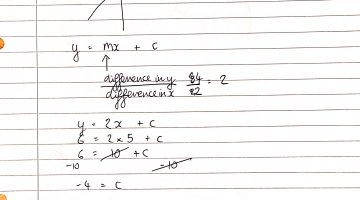 y = mx + c
difference in y
difference in x
= 2
y = 2x + c
6 = 2 x 5 + c
6 = 10 + c
-10 -10
-4 = c